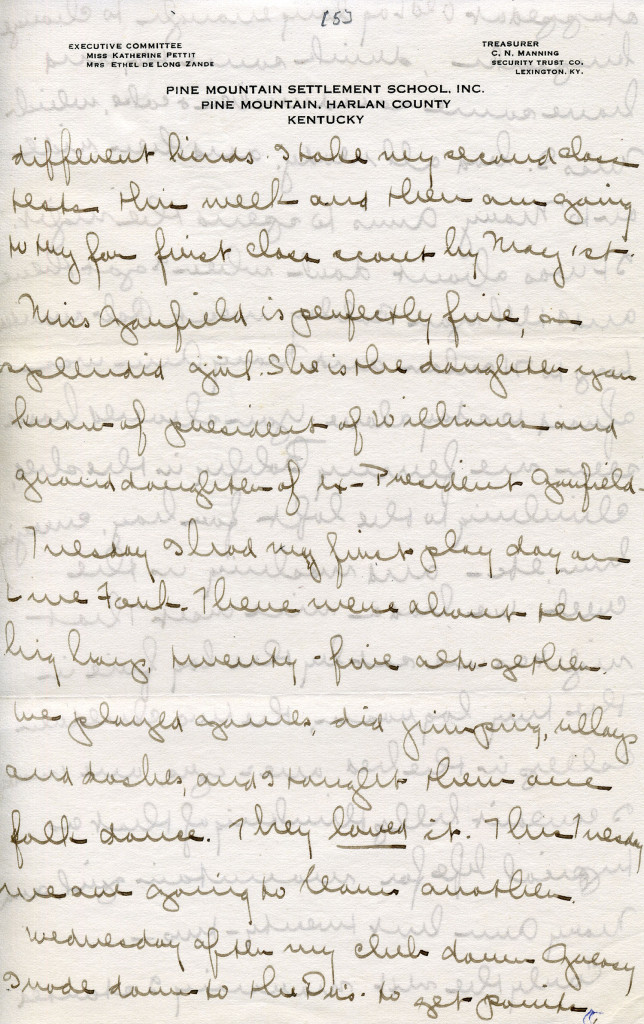 [5]
EXECUTIVE COMMITTEE
MISS KATHERINE PETTIT
MRS ETHEL DE LONG ZANDE
TREASURER
C. N. MANNING
SECURITY TRUST CO.
LEXINGTON. KY.
PINE MOUNTAIN SETTLEMENT SCHOOL, INC.
PINE MOUNTAIN, HARLAN COUNTY
KENTUCKY
different kinds. I take my second class
tests this week and then am going
to try for first class scout by May 1st.
Miss Garfield is perfectly fine, a
splendid girl. She is the daughter you
know of president of Williams and
granddaughter of ex-President Garfield.
Tuesday I had my first play day on
Line Fork. There were about ten
big boys, twenty-five altogether.
We played games, did jumping, relays
and dashes, and I taught them one
folk dance. They loved it. This Tuesday
we are going to learn another.
Wednesday after my club down Greasy
I rode down to the Drs. to get